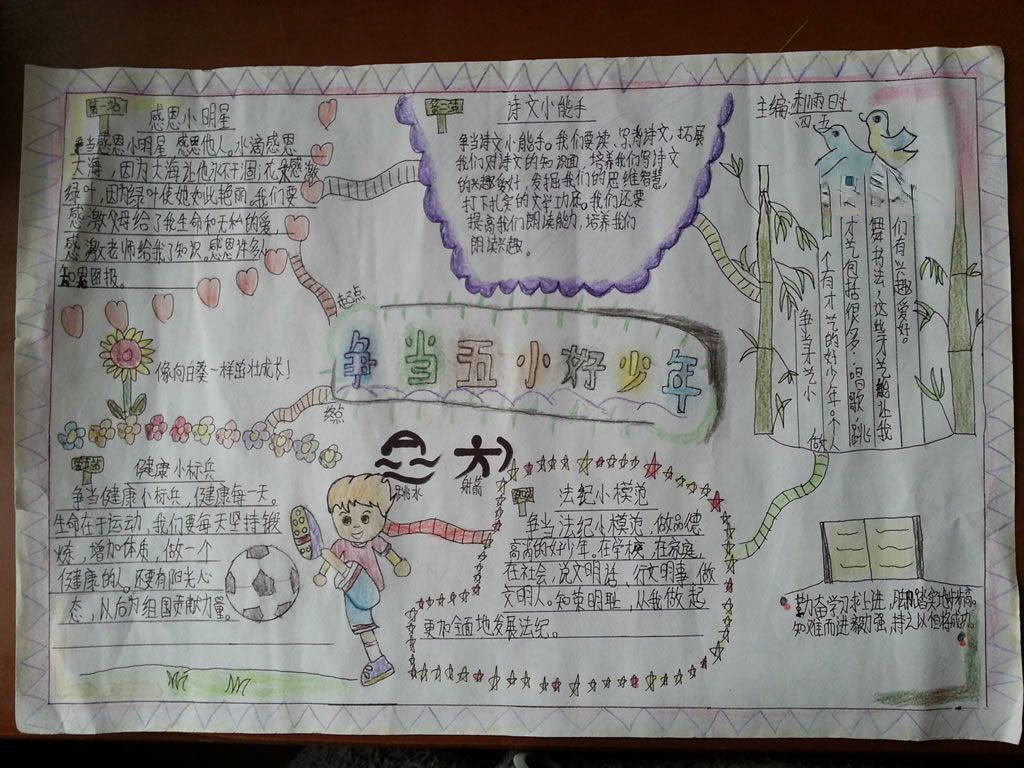 第一站
感恩小明星
争当感恩小明星 感恩他人。水滴感恩
大海，因为大海让他永不干涸；花朵感激
绿叶，因为绿叶使她如此艳丽。我们要
感激父母给了我生命和无私的爱，
感激老师给我了知识。感恩许多，
知恩图报。
第二站
诗文小能手
争当诗文小能手。我们要读、常背诗文，拓展
我们对诗文的知识面，培养我们写诗文
的兴趣爱好，发掘我们的思维智慧，
打下扎实的文学功底。我们还要
提高我们朗读能力，培养我们
朗读兴趣。
主编：
四、五
争当才艺小
个有才艺的好少年。个人
才艺包括很多：唱歌，跳
舞书法，这些才艺能让我
们有兴趣爱好。
做
起点
争当五小好少年
终点
像向日葵一样茁壮成长！
健康小标兵
争当健康小标兵，健康每一天。
生命在于运动，我们要每天坚持锻
炼，增加体质，做一个
健康的人。还要有阳光心
态，从后为祖国贡献力量。
跳水
射箭
法纪小模范
争当法纪小模范，做品德
高尚的好少年。在学校，在家庭，
在社会，说文明话，行文明事，做
文明人。知荣明耻，从我做起
更加全面地发展法纪。
勤奋学习求上进，脚踏实地好标高。
知难而进毅力强，持之以恒将成功。